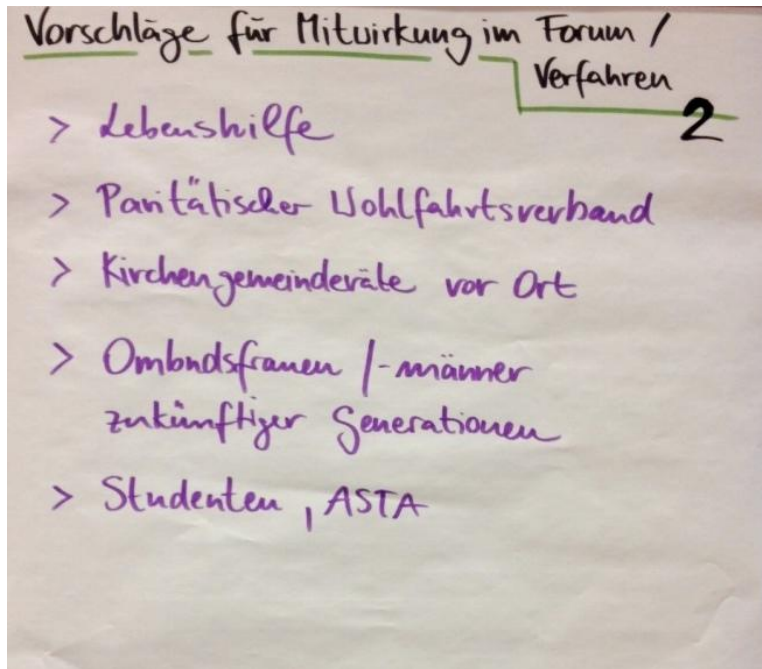 Vorschläge für Mitwirkung im Forum /
Verfahren
2
> Lebenshilfe
> Paritätischer Wohlfahrtsverband
> Kirchengemeinderäte vor Ort
> Ombudsfrauen /-männer
zukünftiger Generationen
> Studenten, ASTA